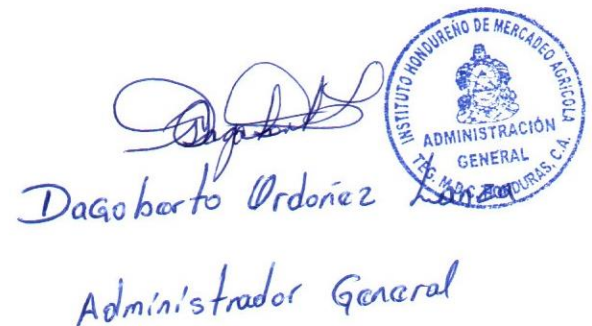 INSTITUTO HONDUREÑO DE MERCADEO AGRICOLA
ADMINISTRACIÓN
GENERAL
TEG. M.D.C. HONDURAS, C.A.
Dagoberto Ordoñez Lanza
Administrador General